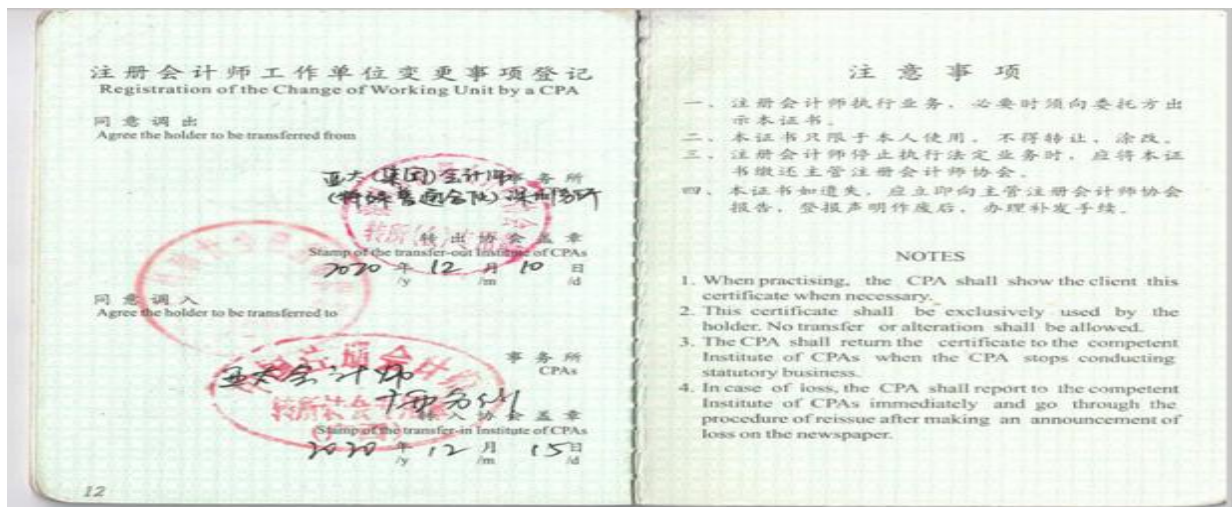 注册会计师工作单位变更事项登记
Registration of the Change of Working Unit by a CPA
同意调出
Agree the holder to be transferred from
亚太(集团)会计师事务所
(特殊普通合伙)深圳分所
转出协会盖章
Stamp of the transfer-out Institute of CPAs
2020年12月10日
/y /m /d
同意调入
Agree the holder to be transferred to
亚太会计师
事务所
CPAs
转入协会盖章
Stamp of the transfer-in Institute of CPAs
2020年12月15日
/y /m /d
12
注意事项
一、注册会计师执行业务，必要时须向委托方出
示本证书。
二、本证书只限于本人使用，不得转让、涂改。
三、注册会计师停止执行法定业务时，应将本证
书缴还主管注册会计师协会。
四、本证书如遗失，应立即向主管注册会计师协会
报告，登报声明作废后，办理补发手续。
NOTES
1. When practising, the CPA shall show the client this
certificate when necessary.
2. This certificate shall be exclusively used by the
holder. No transfer or alteration shall be allowed.
3. The CPA shall return the certificate to the competent
Institute of CPAs when the CPA stops conducting
statutory business.
4. In case of loss, the CPA shall report to the competent
Institute of CPAs immediately and go through the
procedure of reissue after making an announcement of
loss on the newspaper.